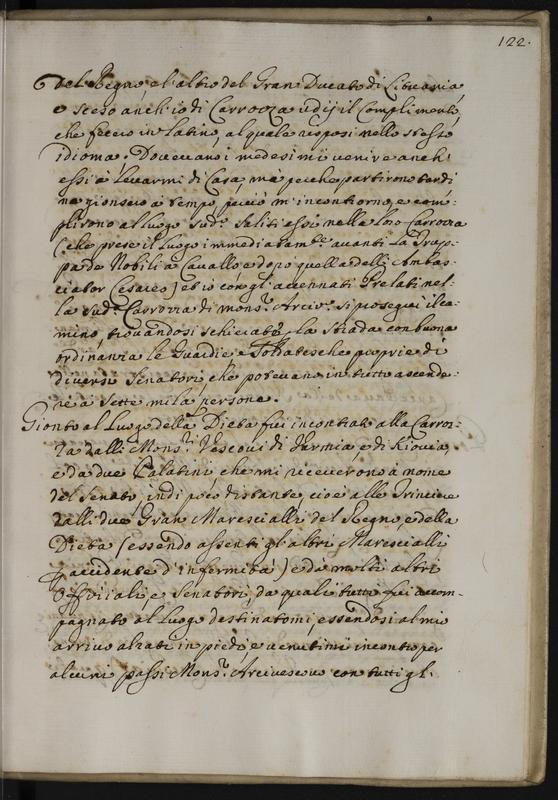 122.
del Regno, e l'altro del Gran Ducato di Lituania,
e sceso anch'io di Carrozza udij il Complimento,
che fecero in Latino, al quale risposi nello stesso
idioma. Dovevano i medesimi venire anch'
essi à levarmi di Casa, ma perche partirono tardi
ne gionsero à tempo, perciò m'incontrorno, e com-
plirono al luogo sud.º Saliti essi nella loro Carrozza
(che prese il luogo immediatam.te avanti la Trup-
pa de Nobili à Cavallo, e dopo quella delli Ambas-
ciator Cesareo) et io con gl'accennati Prelati nel-
la sud.ª Carrozza di mons.r Arciv.º si proseguì il ca-
mino, trovandosi schierate la Strada con buona
ordinanza le Guardie e Soldatesche proprie di
diversi Senatori, che potevano in tutto ascende-
re à sette mila persone.
Gionto al Luogo della Dieta fui incontrato alla Carroz-
za dalli Mons.ri Vescovi di Varmia, e di Kiovia,
e da due Palatini, che mi riceverono à nome
del Senato, indi poco distante, cioè alle Trinciere
dalli due Gran Marescialli del Regno, e della
Dieta (essendo assenti gl'altri Marescialli
p accidente d'infermità) e da molti altri
Offitiali, e Senatori, da quali tutti fui accom-
pagnato al Luogo destinatomi, essendosi al mio
arrivo alzati in piedi, e venutimi incontro per
alcuni passi Mons.r Arcivescovo con tutti gl'